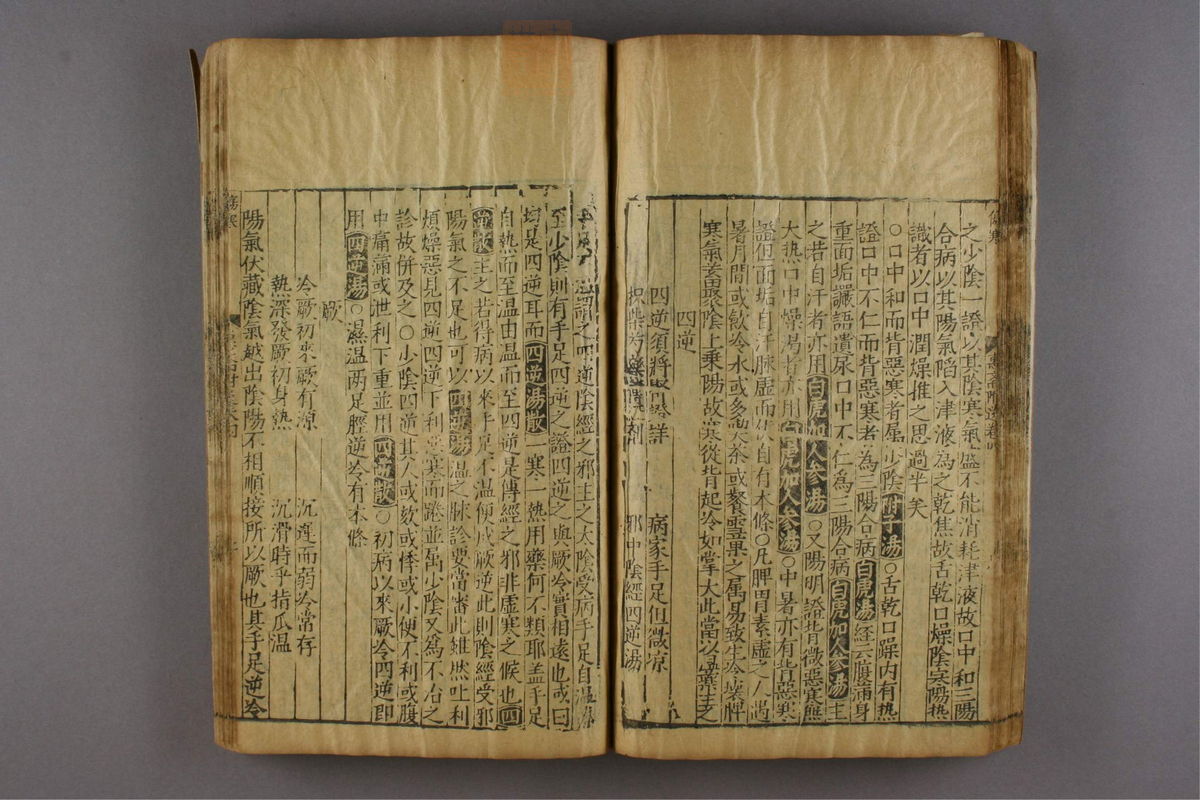 之少陰一證以其陰寒氣盛不能消耗津液故口中和三陽
合病以其陽氣陷入津液為之乾焦故舌乾口燥陰寒陽熱
識者以口中潤燥推之思過半矣
○口中和而背惡寒者屬少陰附子湯○舌乾口躁內有熱
證口中不仁而背惡寒者為三陽合病白虎湯經云腹滿身
重面垢讝語遺尿口中不仁為三陽合病白虎加人參湯主
之若自汗者亦用白虎加人參湯○又陽明證背微惡寒無
大熱口中燥渴者亦用白虎加人參湯○中暑亦有背惡寒
證但面垢自汗脉虛而伏自有本條○凡脾胃素虛之人當
暑月間或飲冷水或多喫茶或餐雪果之属易致生冷壞脾
寒氣蓄聚陰上乘陽故寒從背起冷如掌大此當以温藥主之
四逆
四逆須將證詳　病家手足但微凉
枳柴芍藥　劑　邪中陰經四逆湯
謂之四逆陰經之邪主之太陰受病手足自温
至少陰則有手足四逆之證四逆之與厥冷實相遠也或曰
均是四逆耳而四逆湯散一寒一熱用藥何不類耶盖手足
自熱而至温由温而至四逆是傳經之邪非虛寒之候也四
逆散主之若得病以來手足不温便成厥逆此則陰經受邪
陽氣之不足也可以四逆湯温之脉診要當審此雖然吐利
煩燥惡見四逆四逆下利惡寒而踡並屬少陰又為不治之
診故併及之○少陰四逆其人或欬或悸或小便不利或腹
中痛痛或泄利下重並用四逆散○初病以來厥冷四逆即
用四逆湯○濕温两足脛逆冷有本條
厥
冷厥初來厥有源　沉遲而弱冷常存
熱深發厥初身熱　沉滑時乎指爪温
陽氣伏藏陰氣越出陰陽不相順接所以厥也其手足逆冷
傷寒